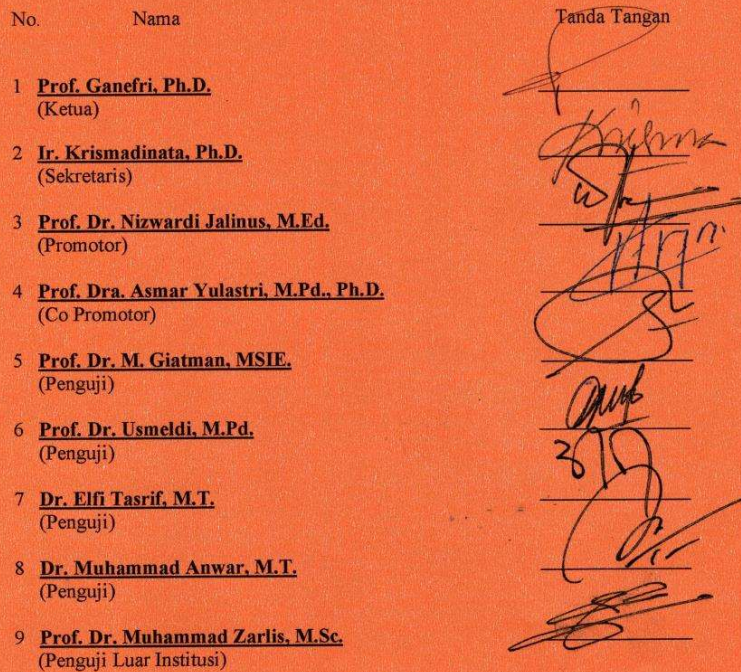 No. Nama Tanda Tangan
1 Prof. Ganefri, Ph.D.
(Ketua)
2 Ir. Krismadinata, Ph.D.
(Sekretaris)
3 Prof. Dr. Nizwardi Jalinus, M.Ed.
(Promotor)
4 Prof. Dra. Asmar Yulastri, M.Pd., Ph.D.
(Co Promotor)
5 Prof. Dr. M. Giatman, MSIE.
(Penguji)
6 Prof. Dr. Usmeldi, M.Pd.
(Penguji)
7 Dr. Elfi Tasrif, M.T.
(Penguji)
8 Dr. Muhammad Anwar, M.T.
(Penguji)
9 Prof. Dr. Muhammad Zarlis, M.Sc.
(Penguji Luar Institusi)